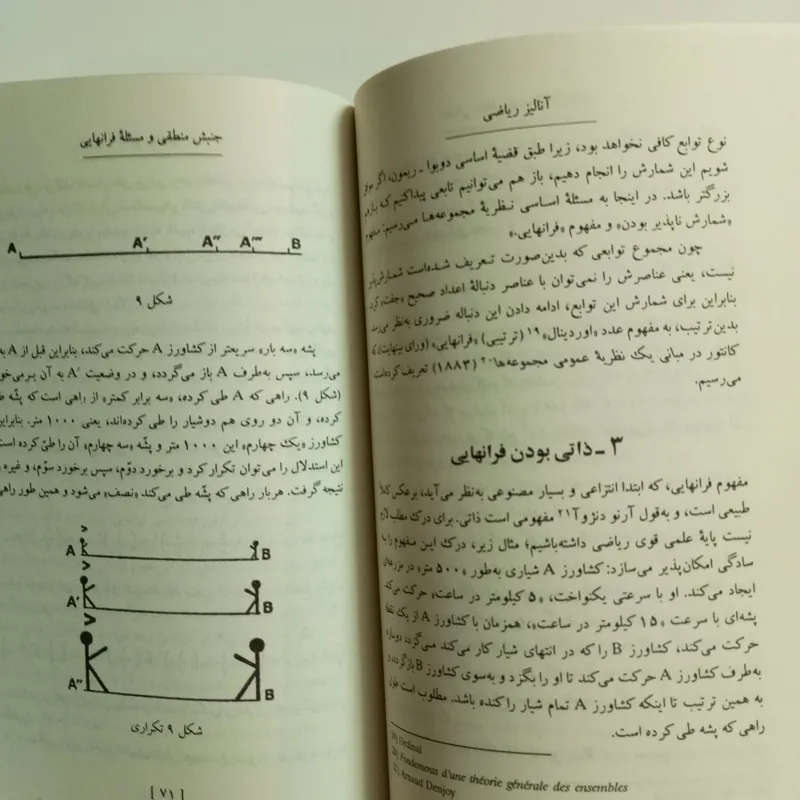 آنالیز ریاضی
نوع توابع کافی نخواهد بود، زیرا طبق قضیهٔ اساسی دوبوا ـ ریمون، اگر موفق
شویم این شمارش را انجام دهیم، باز هم می‌توانیم تابعی پیدا کنیم که باز هم
بزرگتر باشد. در اینجا به مسئلهٔ اساسی نظریهٔ مجموعه‌ها می‌رسیم: مفهوم
«شمارش ناپذیر بودن» و مفهوم «فرانهایی.»
چون مجموع توابعی که بدین‌صورت تعریف شده‌است شمارش‌پذیر
نیست، یعنی عناصرش را نمی‌توان با عناصر دنبالهٔ اعداد صحیح «جفت» کرد
بنابراین برای شمارش این توابع، ادامه دادن این دنباله ضروری به‌نظر می‌رسد
بدین‌ترتیب، به مفهوم عدد «اوردینال»۱۹ (ترتیبی) «فرانهایی» (ورای بینهایت) که
کانتور در مبانی یک نظریهٔ عمومی مجموعه‌ها۲۰ (۱۸۸۳) تعریف کرده‌است
می‌رسیم.
۳ ـ ذاتی بودن فرانهایی
مفهوم فرانهایی، که ابتدا انتزاعی و بسیار مصنوعی به‌نظر می‌آید، برعکس کاملاً
طبیعی است، و به‌قول آرنو دنژوآ۲۱ مفهومی است ذاتی. برای درک مطلب لازم
نیست پایهٔ علمی قوی ریاضی داشته‌باشیم؛ مثال زیر، درک این مفهوم را به
سادگی امکان‌پذیر می‌سازد: کشاورز A شیاری به‌طور «۵۰۰ متر» در مزرعه‌ای
ایجاد می‌کند. او با سرعتی یکنواخت، «۵ کیلومتر در ساعت» حرکت می‌کند
پشه‌ای با سرعت «۱۵ کیلومتر در ساعت»، همزمان با کشاورز A از یک نقطه
حرکت می‌کند، کشاورز B را که در انتهای شیار کار می‌کند می‌گزد، دوباره
به‌طرف کشاورز A حرکت می‌کند تا او را بگزد و به‌سوی کشاورز B بازگردد، و
به همین ترتیب تا اینکه کشاورز A تمام شیار را کنده باشد. مطلوب است طول
راهی که پشه طی کرده است.
19) Ordinal
20) Fondements d'une théorie générale des ensembles
21) Arnaud Denjoy
جنبش منطقی و مسئلهٔ فرانهایی
A A′ A″ A‴′ B
شکل ۹
پشه «سه بار» سریعتر از کشاورز A حرکت می‌کند، بنابراین قبل از A به
می‌رسد، سپس به‌طرف A باز می‌گردد، و در وضعیت A′ به آن برمی‌خو
(شکل ۹). راهی که A طی کرده، «سه برابر کمتر» از راهی است که پشه
کرده، و آن دو روی هم دوشیار را طی کرده‌اند، یعنی ۱۰۰۰ متر. بنابراین
کشاورز «یک چهارم» این ۱۰۰۰ متر و پشه «سه چهارم» آن را طی کرده است
این استدلال را می‌توان تکرار کرد و برخورد دوّم، سپس برخورد سوّم، و غیره
نتیجه گرفت. هربار راهی که پشه طی می‌کند «نصف» می‌شود و همین طور راهی
A B
A′ B
A″ B
شکل ۹ تکراری
[ ۷۱ ]